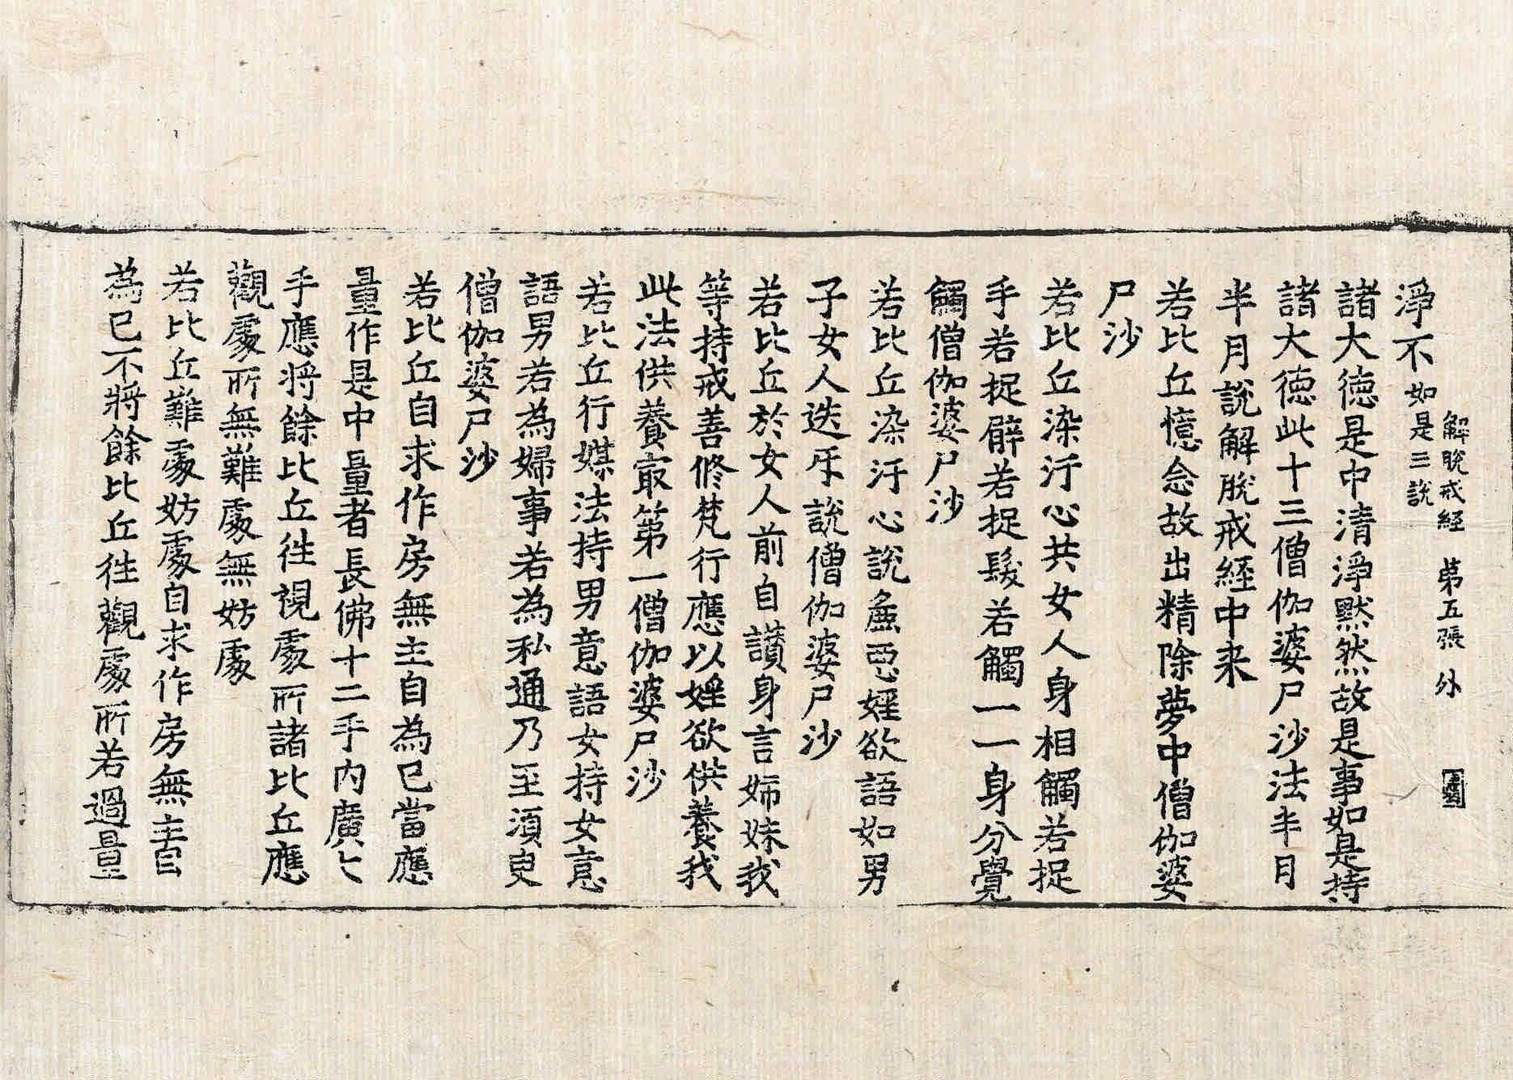 解脫戒經 第五張 外
淨不如是三說
諸大德是中清淨默然故是事如是持
諸大德此十三僧伽婆尸沙法半月
半月說解脫戒經中来
若比丘憶念故出精除夢中僧伽婆
尸沙
若比丘染汙心共女人身相觸若捉
手若捉臂若捉髮若觸一一身分覺
觸僧伽婆尸沙
若比丘染汙心說麁惡婬欲語如男
子女人迭互說僧伽婆尸沙
若比丘於女人前自讃身言姉妹我
等持戒善修梵行應以婬欲供養我
此法供養冣第一僧伽婆尸沙
若比丘行媒法持男意語女持女意
語男若為婦事若為私通乃至須臾
僧伽婆尸沙
若比丘自求作房無主自為已當應
量作是中量者長佛十二手內廣七
手應將餘比丘徃視處所諸比丘應
觀處所無難處無妨處
若比丘難處妨處自求作房無主自
為已不將餘比丘徃觀處所若過量